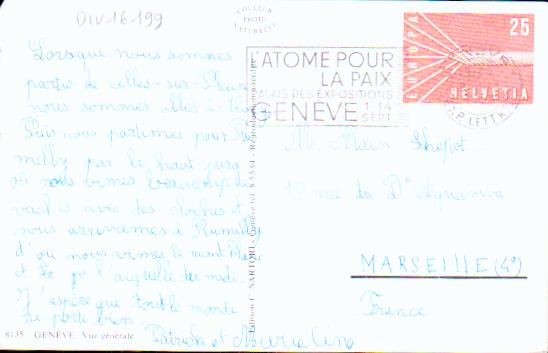 DIV-16-199
COULEUR
PHOTO
NATURELLE
Lorsque nous sommes
partis de celles-sur-Plaine
nous sommes allés à
Puis nous partîmes pour Ru-
milly par le haut jura
où nous vîmes beaucoup de
vaches avec des cloches et
nous arrivâmes à Rumilly
d'où nous vîmes le mont blanc
et l'aiguille du midi.
J'espère que tout le monde
se porte bien.
Patrick et Marceline
8135 GENÈVE. Vue générale
Edition C. SARTORI - Genève
L'ATOME POUR
LA PAIX
PALAIS DES EXPOSITIONS
GENÈVE 1-14
SEPT
EUROPA
25
HELVETIA
M. Alain
10 rue du Dr Aquaviva
MARSEILLE (4e)
France